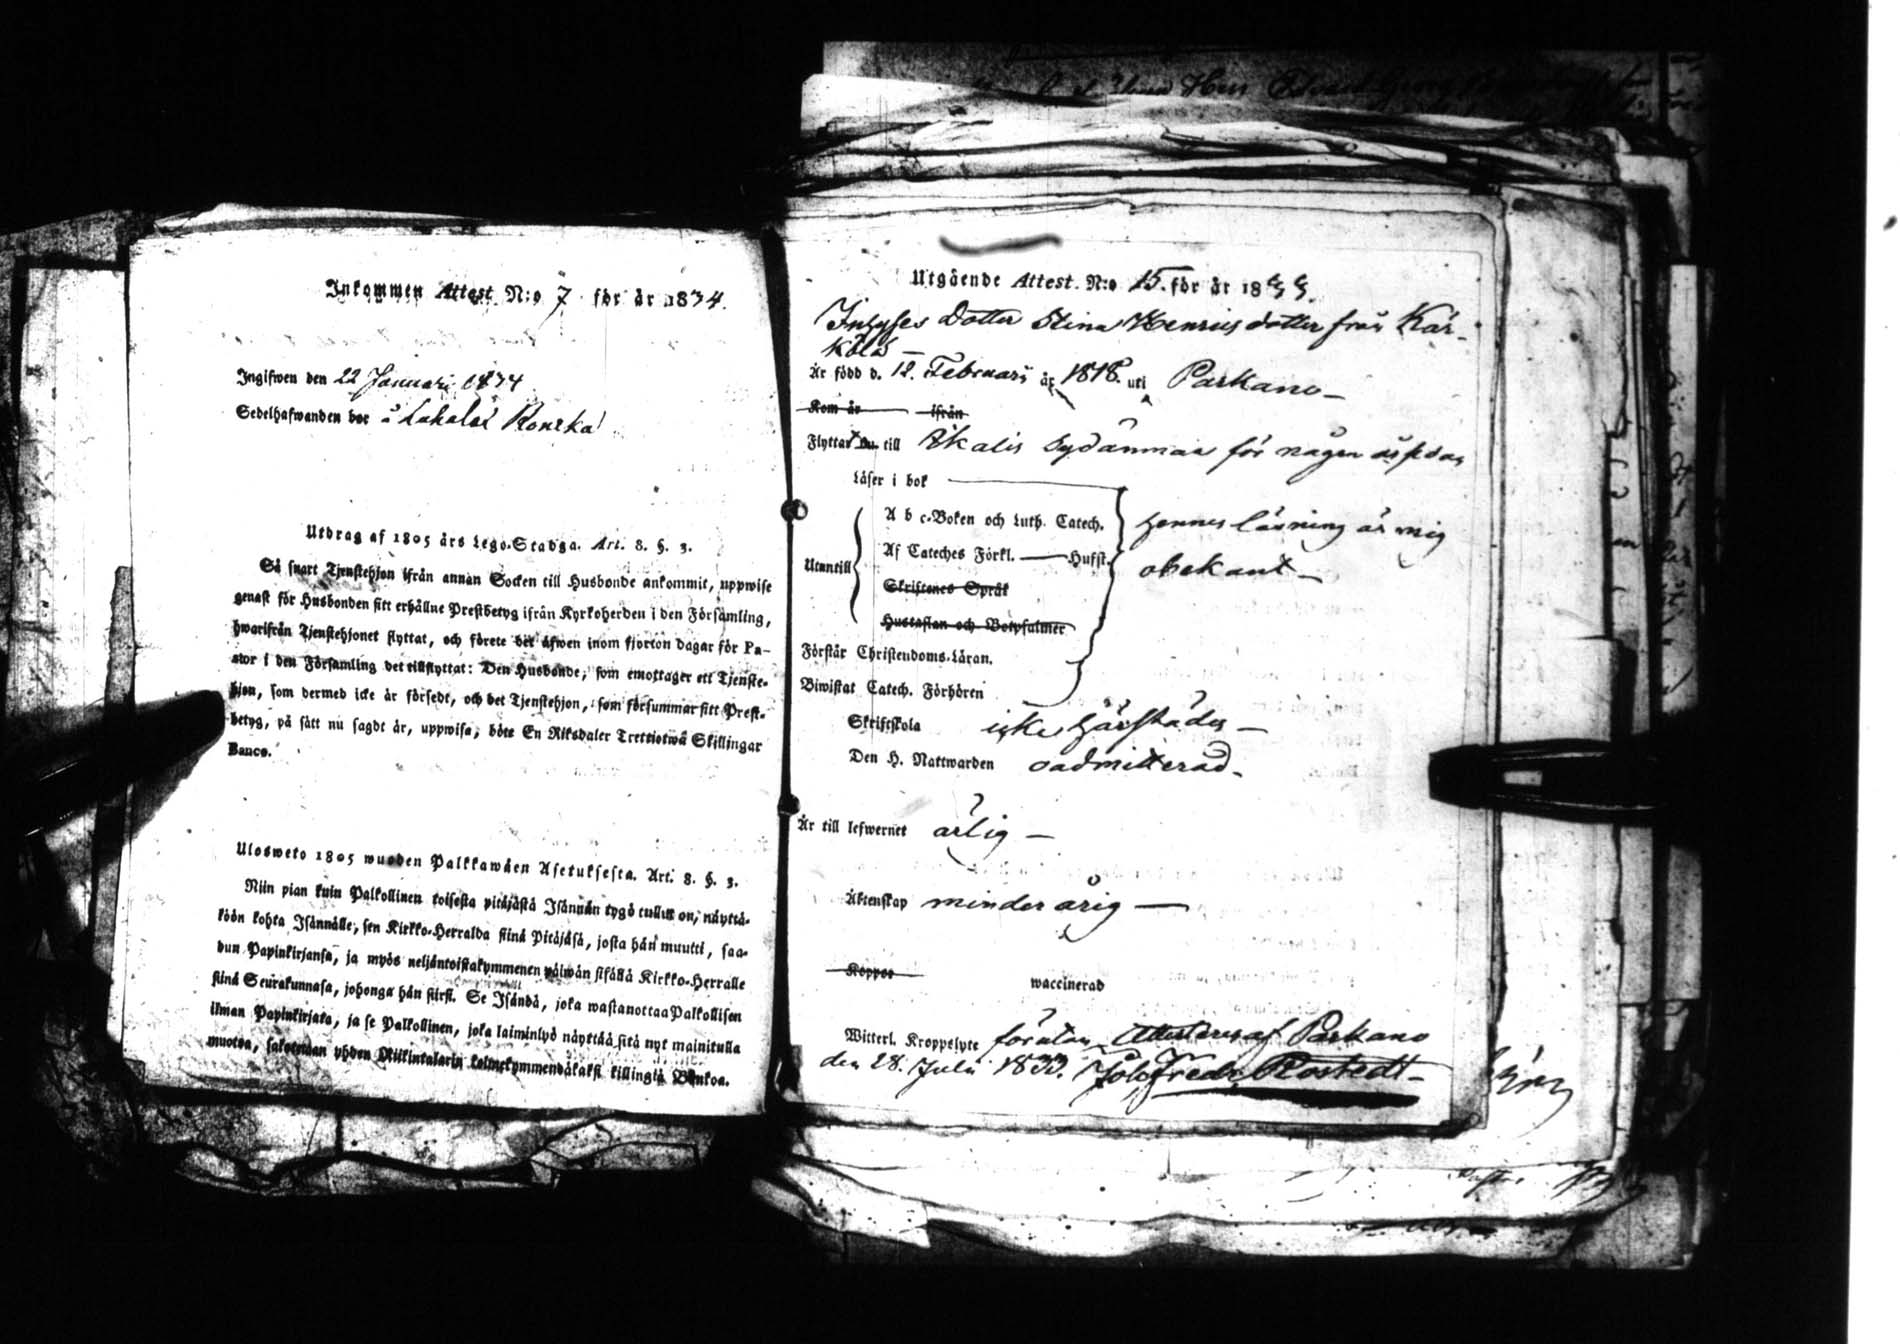 Inkommen Attest N:o 7 för år 1834.
Ingifwen den 22 Januari 1834
Sedelhafwanden bor å Lahalax
Utdrag af 1805 års Lego-Stadga. Art. 8. §. 3.
Så snart Tjenstehjon ifrån annan Socken till Husbonde ankommit, uppwise
genast för Husbonden sitt erhållne Prestbetyg ifrån Kyrkoherden i den Församling,
hwarifrån Tjenstehjonet flyttat, och förete det äfwen inom fjorton dagar för Pa-
stor i den Församling det tillflyttat: Den Husbonde, som emottager ett Tjenste-
hjon, som dermed icke är försedt, och det Tjenstehjon, som försummar sitt Prest-
betyg, på sätt nu sagdt är, uppwisa, böte En Riksdaler Trettiotwå Skillingar
Banco.
Ulosweto 1805 wuoden Palkkawäen Asetuksesta. Art. 8. §. 3.
Niin pian kuin Palkollinen toisesta pitäjästä Isännän tygö tullut on, näyttä-
köön kohta Isännälle, sen Kirkko-Herralda siinä Pitäjäsä, josta hän muutti, saa-
dun Papinkirjansa, ja myös neljäntoistakymmenen päiwän sisällä Kirkko-Herralle
siinä Seurakunnasa, johonga hän siirsi. Se Isändä, joka wastanottaa Palkollisen
ilman Papinkirjata, ja se Palkollinen, joka laiminlyö näyttää sitä nyt mainitulla
muotoa, sakotetaan yhden Riikintalarin kolmekymmendäkaksi killingiä Bankoa.
Utgående Attest. N:o 15. för år 1833.
Inhyses Dotter Stina Henrics dotter från Kär-
kölä —
Är född d. 12. Februari år 1818. uti Parkano —
Kom år ifrån
Flyttar nu till Ikalis Sydänmaa för någon
Läser i bok
A b c-Boken och Luth. Catech. Hennes läsning är mig
Af Cateches Förkl. — Husst. obekant —
Utantill
Skriftenes Språk
Hustaflan och Botpsalmer
Förstår Christendoms-Läran.
Biwistat Catech. Förhören
Skriftskola icke härstädes —
Den H. Nattwarden oadmitterad.
Är till lefwernet ärlig —
Äktenskap minderårig —
Koppor waccinerad
Witterl. Kroppslyte förutan, Attesteras af Parkano
den 28. Julii 1833. Joh. Fredr. Rostedt